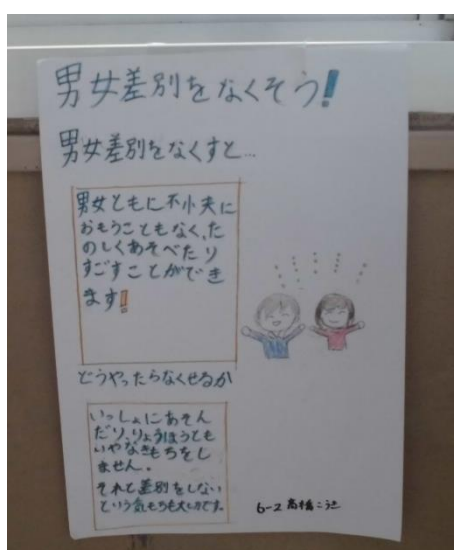 男女差別をなくそう!
男女差別をなくすと…
男女ともに不小夫に
おもうこともなく、た
のしくあそべたり
すごすことができ
ます!!
どうやったらなくせるか
いっしょにあそん
だり、りょうほうとも
いやなきもちをし
ません。
それと差別をしない
という気もちも大切です。
6-2 高橋こ